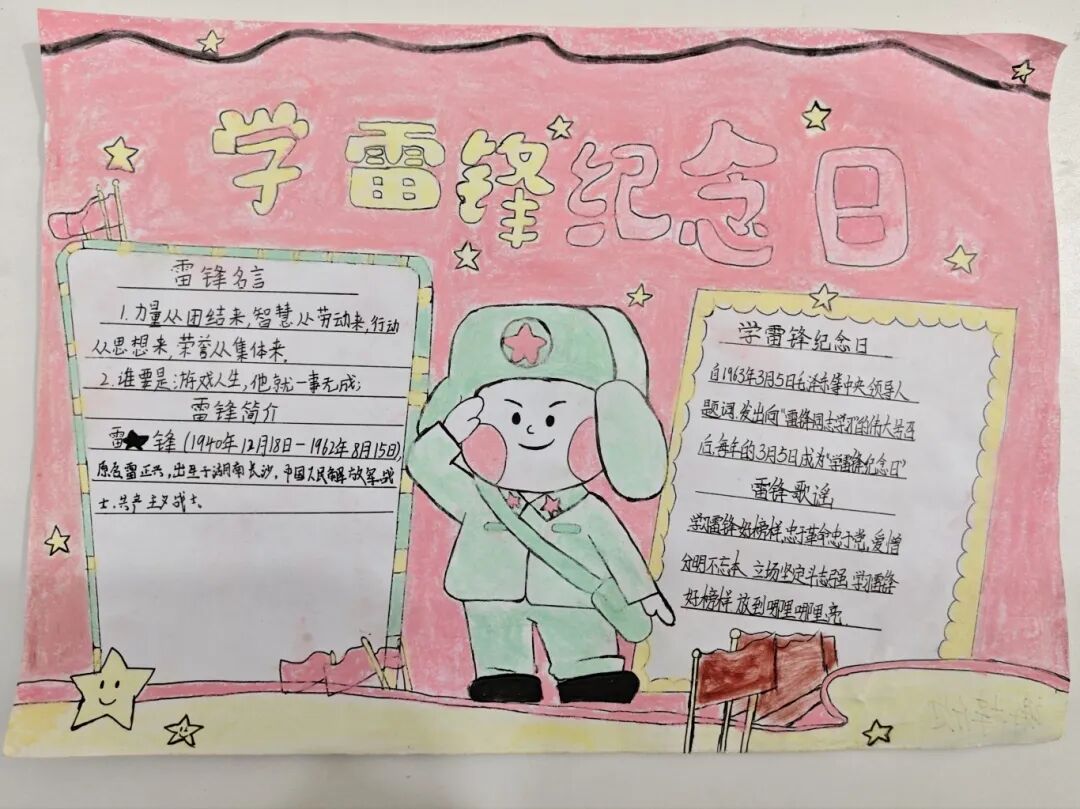 学雷锋纪念日
雷锋名言
1.力量从团结来,智慧从劳动来,行动
从思想来,荣誉从集体来.
2.谁要是游戏人生,他就一事无成;
雷锋简介
雷锋(1940年12月18日-1962年8月15日),
原名雷正兴,出生于湖南长沙,中国人民解放军战
士、共产主义战士.
学雷锋纪念日
自1963年3月5日毛泽东等中央领导人
题词,发出向"雷锋同志学习"的伟大号召
后,每年的3月5日成为"学雷锋纪念日"
雷锋歌谣
学习雷锋好榜样,忠于革命忠于党,爱憎
分明不忘本、立场坚定斗志强,学习雷锋
好榜样,放到哪里哪里亮.